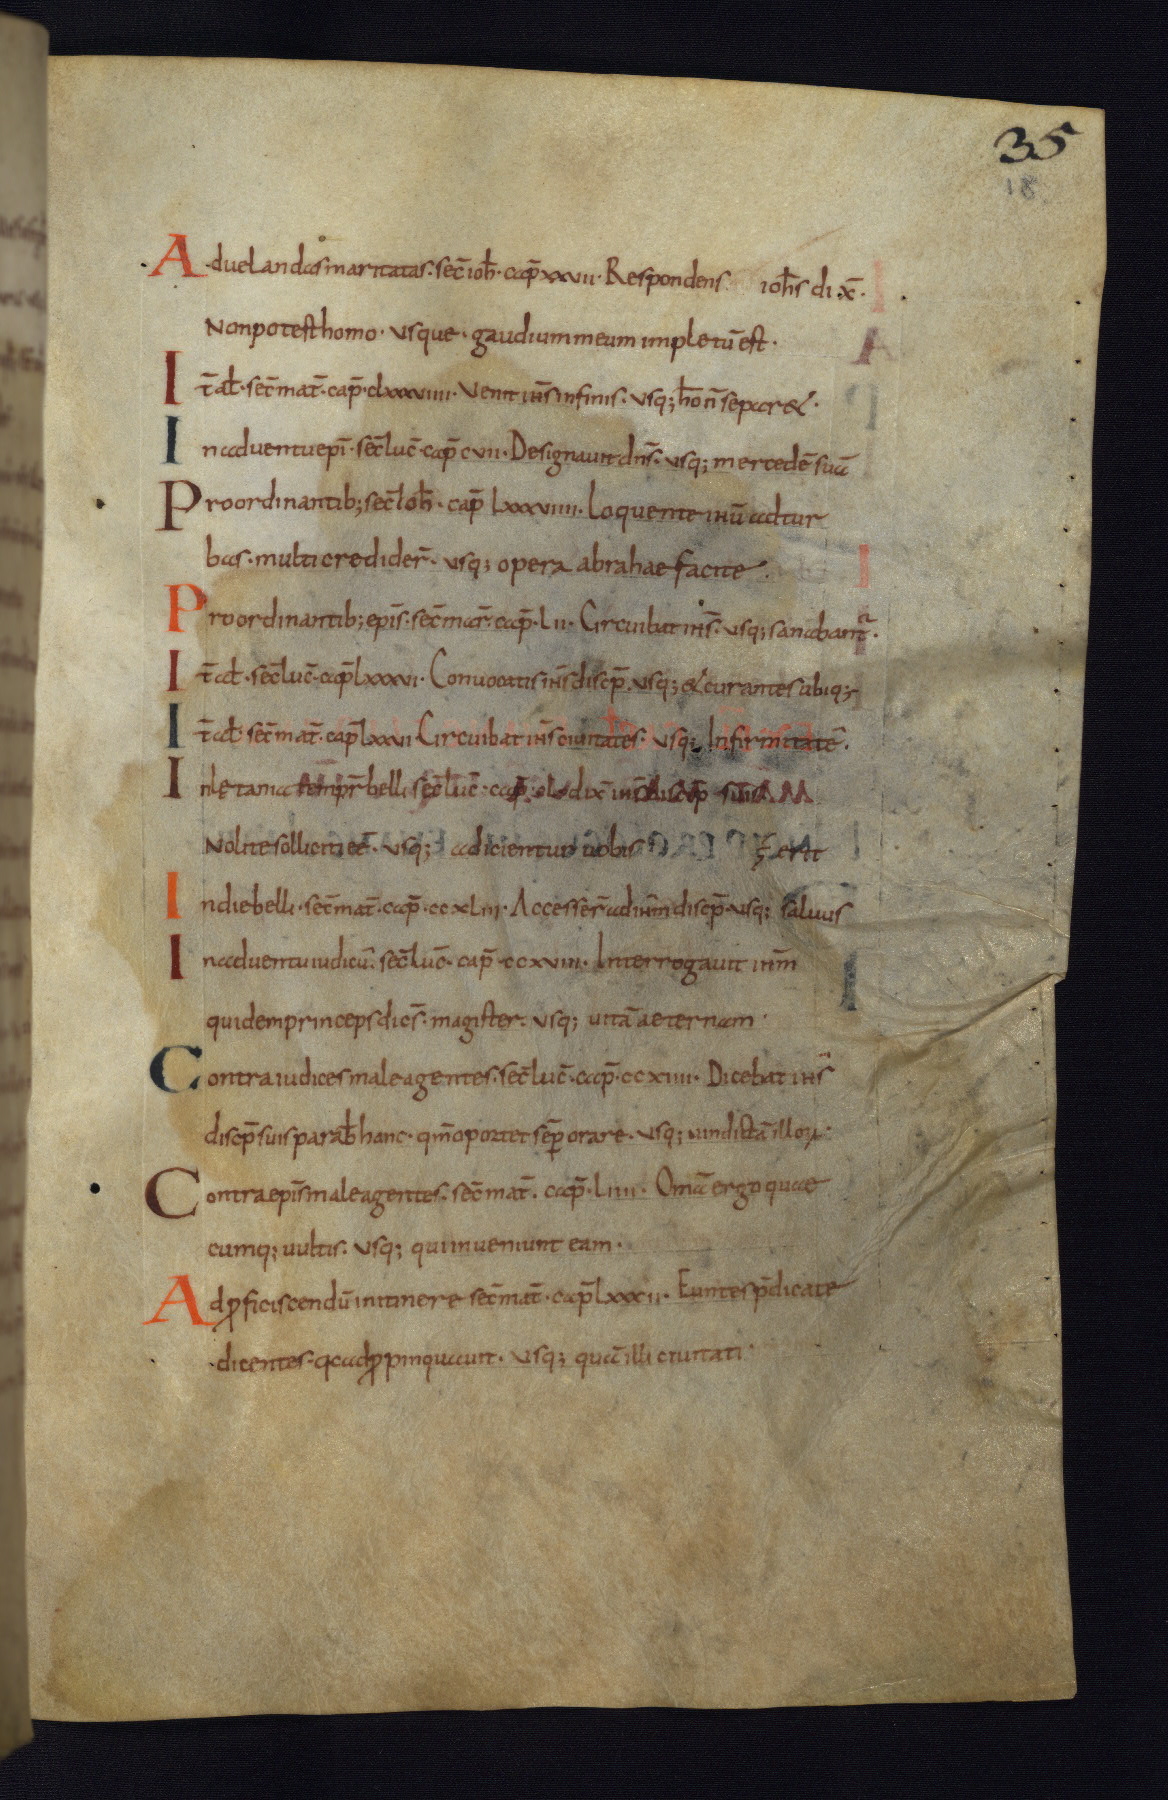 35
18
Aduelandas maritatas. sec̄ ioh̄. cap̄ xxvii. Respondens ioh̄s dix̄.
Non potest homo. usque. gaudium meum impletū est.
It̄ al̄. sec̄ mat̄. cap̄. clxxxviiii. Venit ih̄s in finis. usq; hō n̄ separ&.
In aduentu epī. sec̄ luc̄. cap̄ cvii. Designauit dn̄s. usq; mercedē suā
Pro ordinantib; sec̄ ioh̄. cap̄ lxxxviiii. Loquente ih̄u ad tur
bas. multi credider̄. usq; opera abrahae facite.
Pro ordinantib; epīs. sec̄ mar̄. cap̄. lii. Circuibat ih̄s. usq; sanabant̄.
It̄ al̄. sec̄ luc̄. cap̄ lxxxvi. Conuocatis ih̄s discip̄. usq; & curantes ubiq;
It̄ al̄ sec̄ mat̄. cap̄ lxxvi. Circuibat ih̄s ciuitates. usq; Infirmitatē.
In letania temp̄r belli sec̄ luc̄. cap̄. dix̄ ih̄s discip̄ suis
Nolite solliciti eē. usq; adicientur uobis
In die belli. sec̄ mat̄. cap̄. ccxliii. Accesser̄ ad ih̄m discip̄. usq; saluus
In aduentu iudicū. sec̄ luc̄. cap̄. ccxviii. Interrogauit ih̄m
quidem princeps dic̄s. magister. usq; uitā aeternam.
Contra iudices male agentes. sec̄ luc̄. cap̄. ccxiiii. Dicebat ih̄s
discip̄ suis parab̄ hanc. qm̄ oportet semp̄ orare. usq; uindictā illoꝝ.
Contra epīs male agentes. sec̄ mat̄. cap̄. liiii. Om̄a ergo quae
cumq; uultis. usq; qui inueniunt eam.
Ad ꝓficiscendū in itinere sec̄ mat̄. cap̄ lxxxii. Euntes p̄dicate
dicentes. q̄a adꝓpinquauit. usq; quā illi ciuitati.